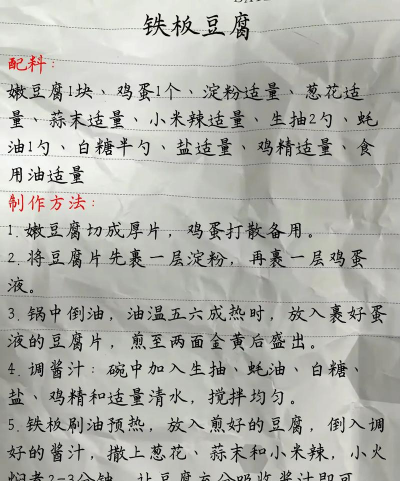 铁板豆腐
配料：
嫩豆腐1块、鸡蛋1个、淀粉适量、葱花适
量、蒜末适量、小米辣适量、生抽2勺、蚝
油1勺、白糖半勺、盐适量、鸡精适量、食
用油适量
制作方法：
1. 嫩豆腐切成厚片，鸡蛋打散备用。
2. 将豆腐片先裹一层淀粉，再裹一层鸡蛋
液。
3. 锅中倒油，油温五六成热时，放入裹好蛋
液的豆腐片，煎至两面金黄后盛出。
4. 调酱汁：碗中加入生抽、蚝油、白糖、
盐、鸡精和适量清水，搅拌均匀。
5. 铁板刷油预热，放入煎好的豆腐，倒入调
好的酱汁，撒上葱花、蒜末和小米辣，小火
焖煮2-3分钟，让豆腐充分吸收酱汁即可